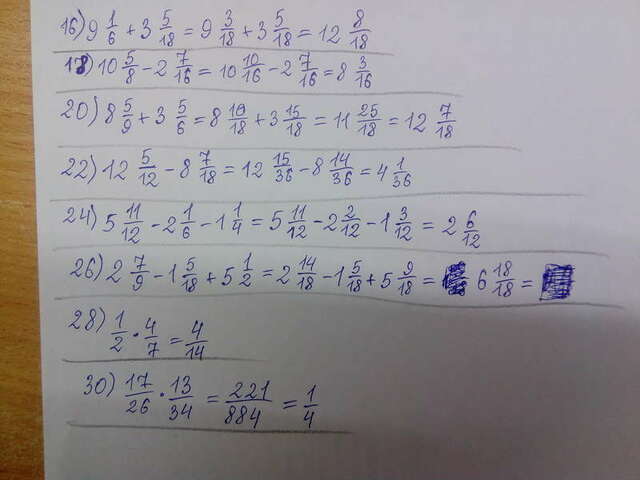 16) 9 1/6 + 3 5/18 = 9 3/18 + 3 5/18 = 12 8/18
18) 10 5/8 - 2 7/16 = 10 10/16 - 2 7/16 = 8 3/16
20) 8 5/9 + 3 5/6 = 8 10/18 + 3 15/18 = 11 25/18 = 12 7/18
22) 12 5/12 - 8 7/18 = 12 15/36 - 8 14/36 = 4 1/36
24) 5 11/12 - 2 1/6 - 1 1/4 = 5 11/12 - 2 2/12 - 1 3/12 = 2 6/12
26) 2 7/9 - 1 5/18 + 5 1/2 = 2 14/18 - 1 5/18 + 5 9/18 = 6 18/18 =
28) 1/2 · 4/7 = 4/14
30) 17/26 · 13/34 = 221/884 = 1/4